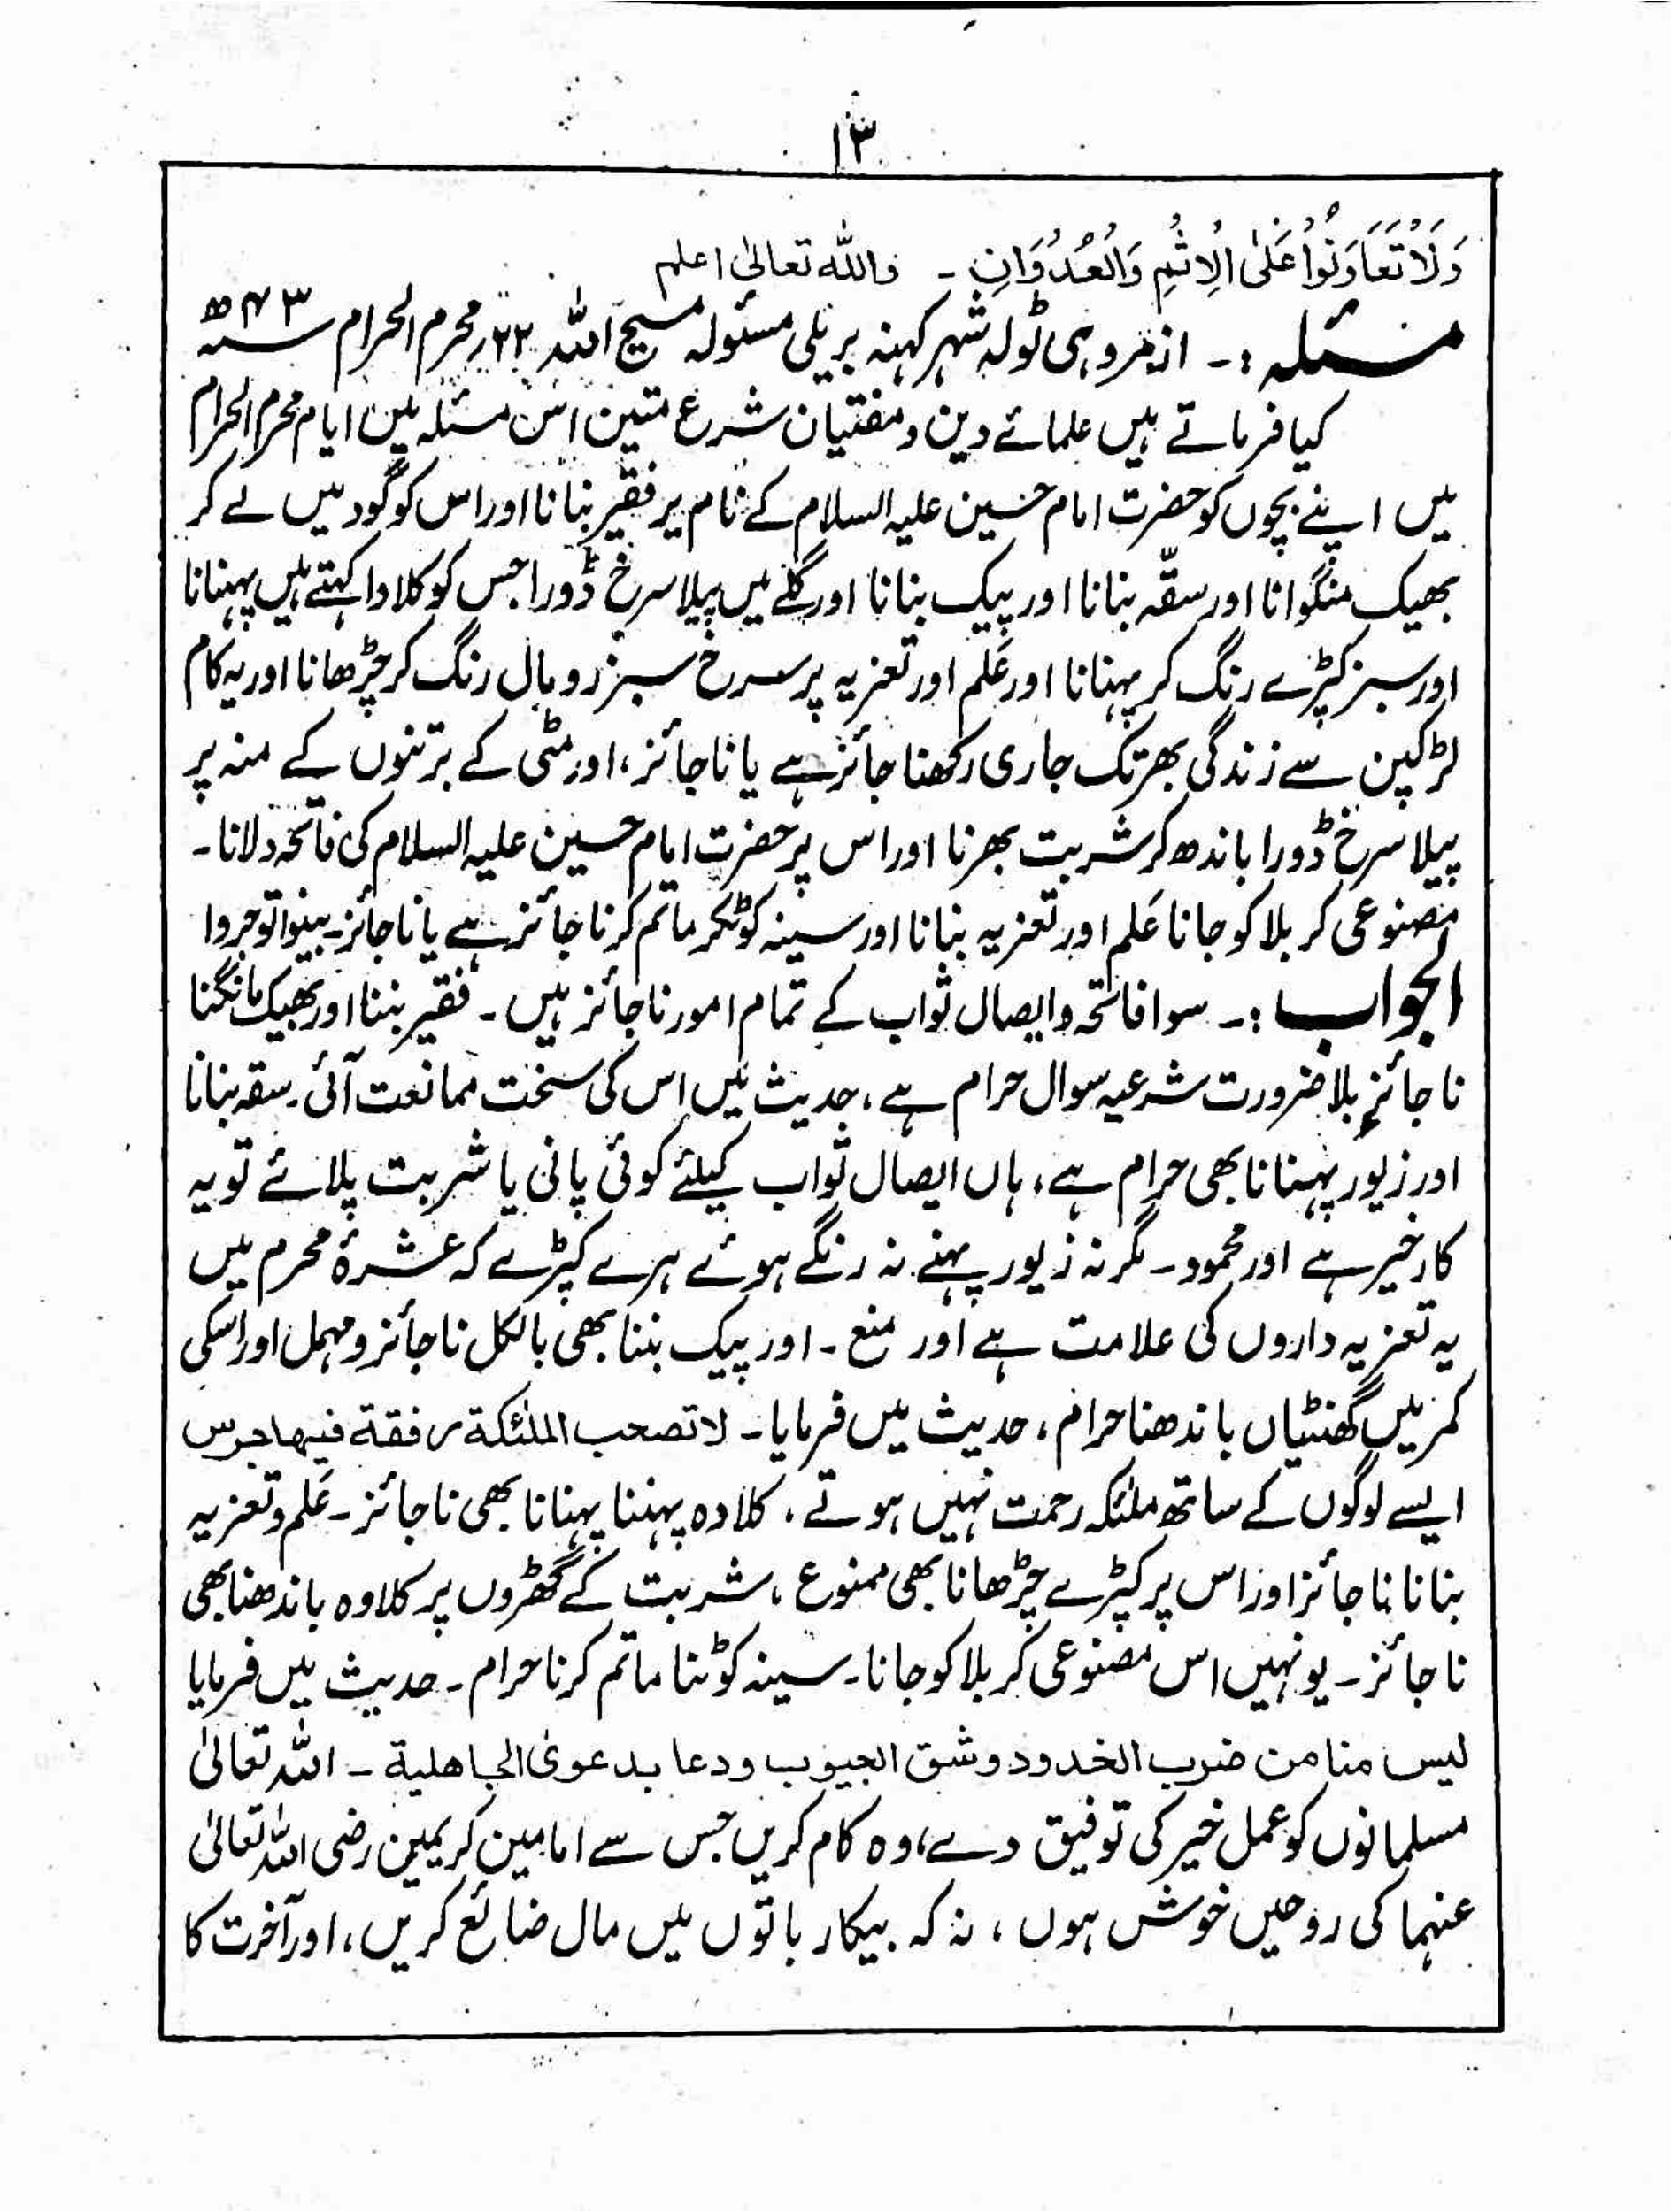 ١٣
وَلَا تَعَاوَنُوْا عَلَى الْاِثْمِ وَالْعُدْوَانِ ۔ واللہ تعالیٰ اعلم
مسئلہ :۔ از مروہی ٹولہ شہر کہنہ بریلی مسئولہ مسیح اللہ ۲۲؍ محرم الحرام سنہ ۴۳ھ
کیا فرماتے ہیں علمائے دین و مفتیان شرع متین اس مسئلہ میں ایام محرم الحرام
میں اپنے بچوں کو حضرت امام حسین علیہ السلام کے نام پر فقیر بنانا اور اس کو گود میں لے کر
بھیک منگوانا اور سقّہ بنانا اور پیک بنانا اور گلے میں پیلا سرخ ڈورا جس کو کلاوا کہتے ہیں پہنانا
اور سبز کپڑے رنگ کر پہنانا اور عَلم اور تعزیہ پر سرخ سبز رومال رنگ کر چڑھانا اور یہ کام
لڑکپن سے زندگی بھر تک جاری رکھنا جائز ہے یا ناجائز، اور مٹی کے برتنوں کے منہ پر
پیلا سرخ ڈورا باندھ کر شربت بھرنا اور اس پر حضرت امام حسین علیہ السلام کی فاتحہ دلانا۔
مصنوعی کربلا کو جانا عَلم اور تعزیہ بنانا اور سینہ کوٹکر ماتم کرنا جائز ہے یا ناجائز۔ بینوا توجروا
الجواب :۔ سوا فاتحہ و ایصال ثواب کے تمام امور ناجائز ہیں۔ فقیر بننا اور بھیک مانگنا
ناجائز بلا ضرورت شرعیہ سوال حرام ہے، حدیث میں اس کی سخت ممانعت آئی۔ سقہ بنانا
اور زیور پہنانا بھی حرام ہے، ہاں ایصال ثواب کیلئے کوئی پانی یا شربت پلائے تو یہ
کار خیر ہے اور محمود۔ مگر نہ زیور پہنے نہ رنگے ہوئے ہرے کپڑے کہ عشرۂ محرم میں
یہ تعزیہ داروں کی علامت ہے اور منع۔ اور پیک بننا بھی بالکل ناجائز و مہمل اور اسکی
کمر میں گھنٹیاں باندھنا حرام، حدیث میں فرمایا۔ لا تصحب الملئکة رفقة فیها جرس
ایسے لوگوں کے ساتھ ملئکہ رحمت نہیں ہوتے، کلاوہ پہننا پہنانا بھی ناجائز۔ عَلم و تعزیہ
بنانا ناجائز اور اس پر کپڑے چڑھانا بھی ممنوع، شربت کے گھڑوں پر کلاوہ باندھنا بھی
ناجائز۔ یونہیں اس مصنوعی کربلا کو جانا۔ سینہ کوٹنا ماتم کرنا حرام۔ حدیث میں فرمایا
لیس منا من ضرب الخدود وشق الجیوب ودعا بدعوی الجاهلیة ۔ اللہ تعالیٰ
مسلمانوں کو عمل خیر کی توفیق دے، وہ کام کریں جس سے امامین کریمین رضی اللہ تعالیٰ
عنہما کی روحیں خوش ہوں، نہ کہ بیکار باتوں میں مال ضائع کریں، اور آخرت کا